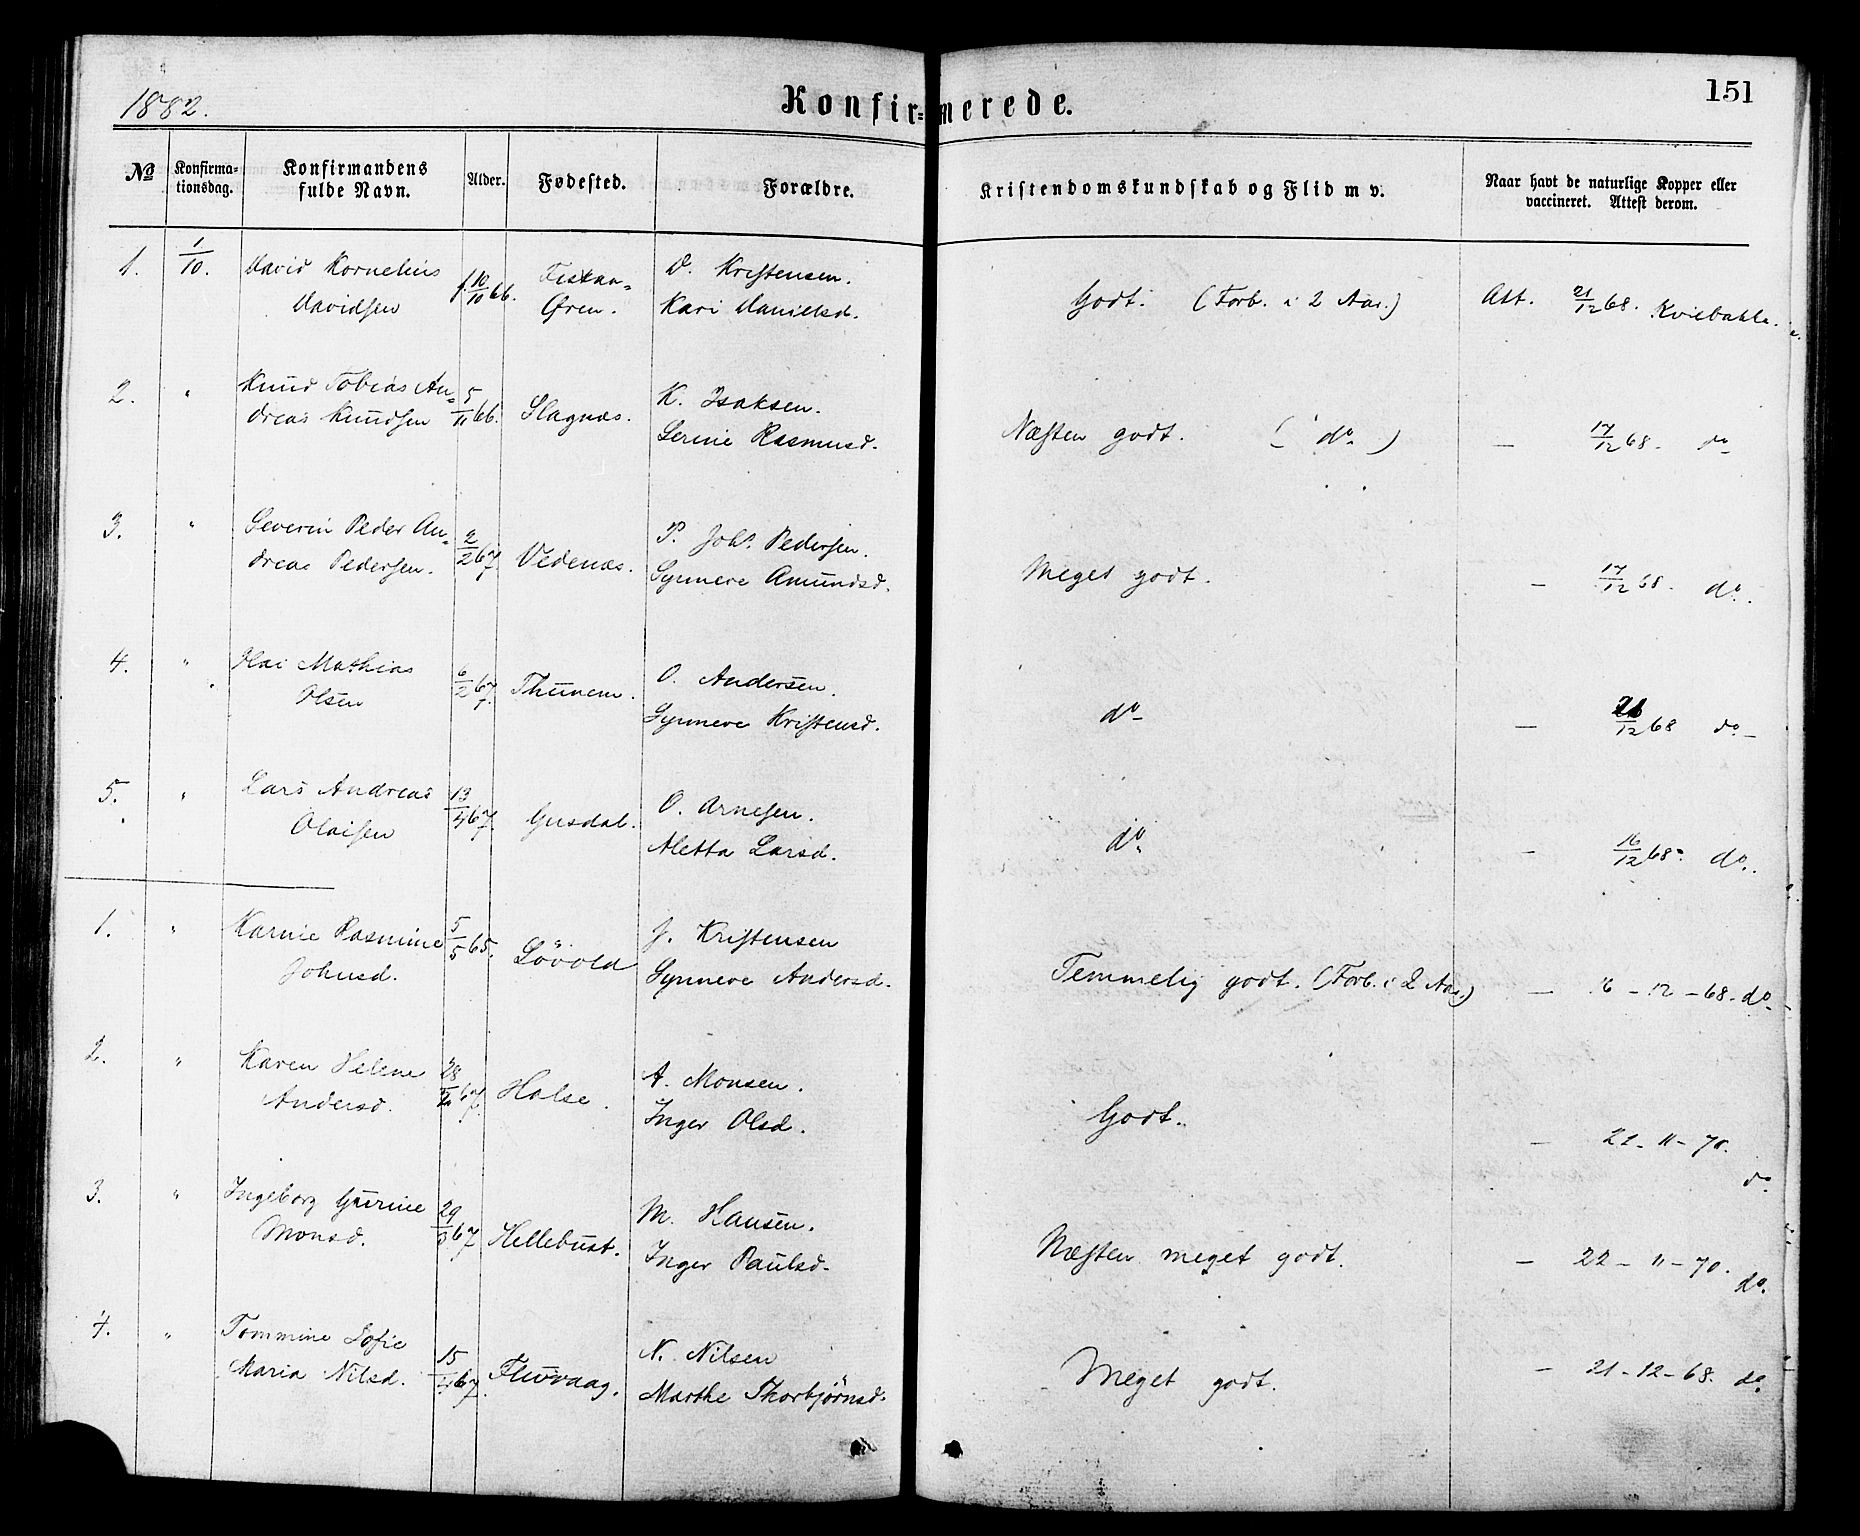 1882.
Konfirmerede.
151
No
Konfirma-
tionsdag.
Konfirmandens
fulde Navn.
Alder.
Fødested.
Forældre.
Kristendomskundskab og Flid m v.
Naar havt de naturlige Kopper eller
vaccineret. Attest derom.
1. 1/10. David Kornelius
Davidsen
f. 10/10 66.
Fiskaa-
Øren.
D. Kristensen.
Kari Danielsd.
Godt. (Forb. i 2 Aar.)
Att. 21/12 68.
2. " Knud Tobias An-
dreas Knudsen
5/11 66.
Slagnæs.
K. Isaksen.
Serine Rasmusd.
Næsten godt. (do)
— 17/12 68. do
3. " Severin Peder An-
dreas Pedersen.
2/2 67.
Vedenæs.
P. Johs. Pedersen.
Synneve Amundsd.
Meget godt.
— 17/12 68. do.
4. " Mathias
Olsen
6/2 67.
Thunem.
O. Andersen.
Synneve Kristensd.
do
— /12 68 do
5. " Lars Andreas
Olaisen
13/4 67.
Gusdal.
O. Arnesen.
Aletta Larsd.
do.
— 16/12 68. do.
1. " Karnie Rasmine
Johnsd.
5/5 65.
Løvold
J. Kristensen
Synneve Andersd.
Temmelig godt. (Forb. i 2 Aar.)
— 16 - 12 - 68. do
2. " Karen Helene
Andersd.
28/2 67.
Halse.
A. Monsen.
Inger Olsd.
Godt.
— 22 - 11 - 70.
do
3. " Ingeborg Gurine
Monsd.
29/3 67
Hellebust.
M. Hansen.
Inger Paulsd.
Næsten meget godt.
— 22 - 11 - 70.
do.
4. " Tommine Sofie
Maria Nilsd.
15/4 67.
Fluvaag.
N. Nilsen
Marthe Thorbjörnsd.
Meget godt.
— 21 - 12 - 68. do.